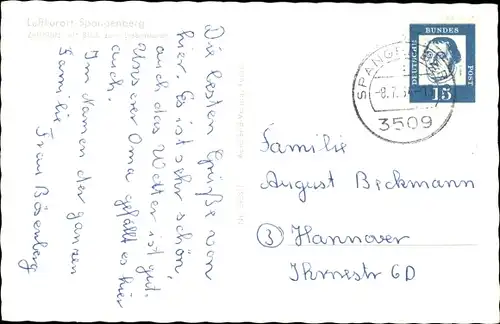 Luftkurort Spangenberg
Die besten Grüße von
hier. Es ist sehr schön,
auch das Wetter ist gut.
Unserer Oma gefällt es hier
auch.
Im Namen der ganzen
Familie
Frau Bösenberg
DEUTSCHE BUNDES POST
15
SPANGENBERG
-8.7.
3509
Familie
August Beckmann
(3) Hannover
Ihmestr 6D